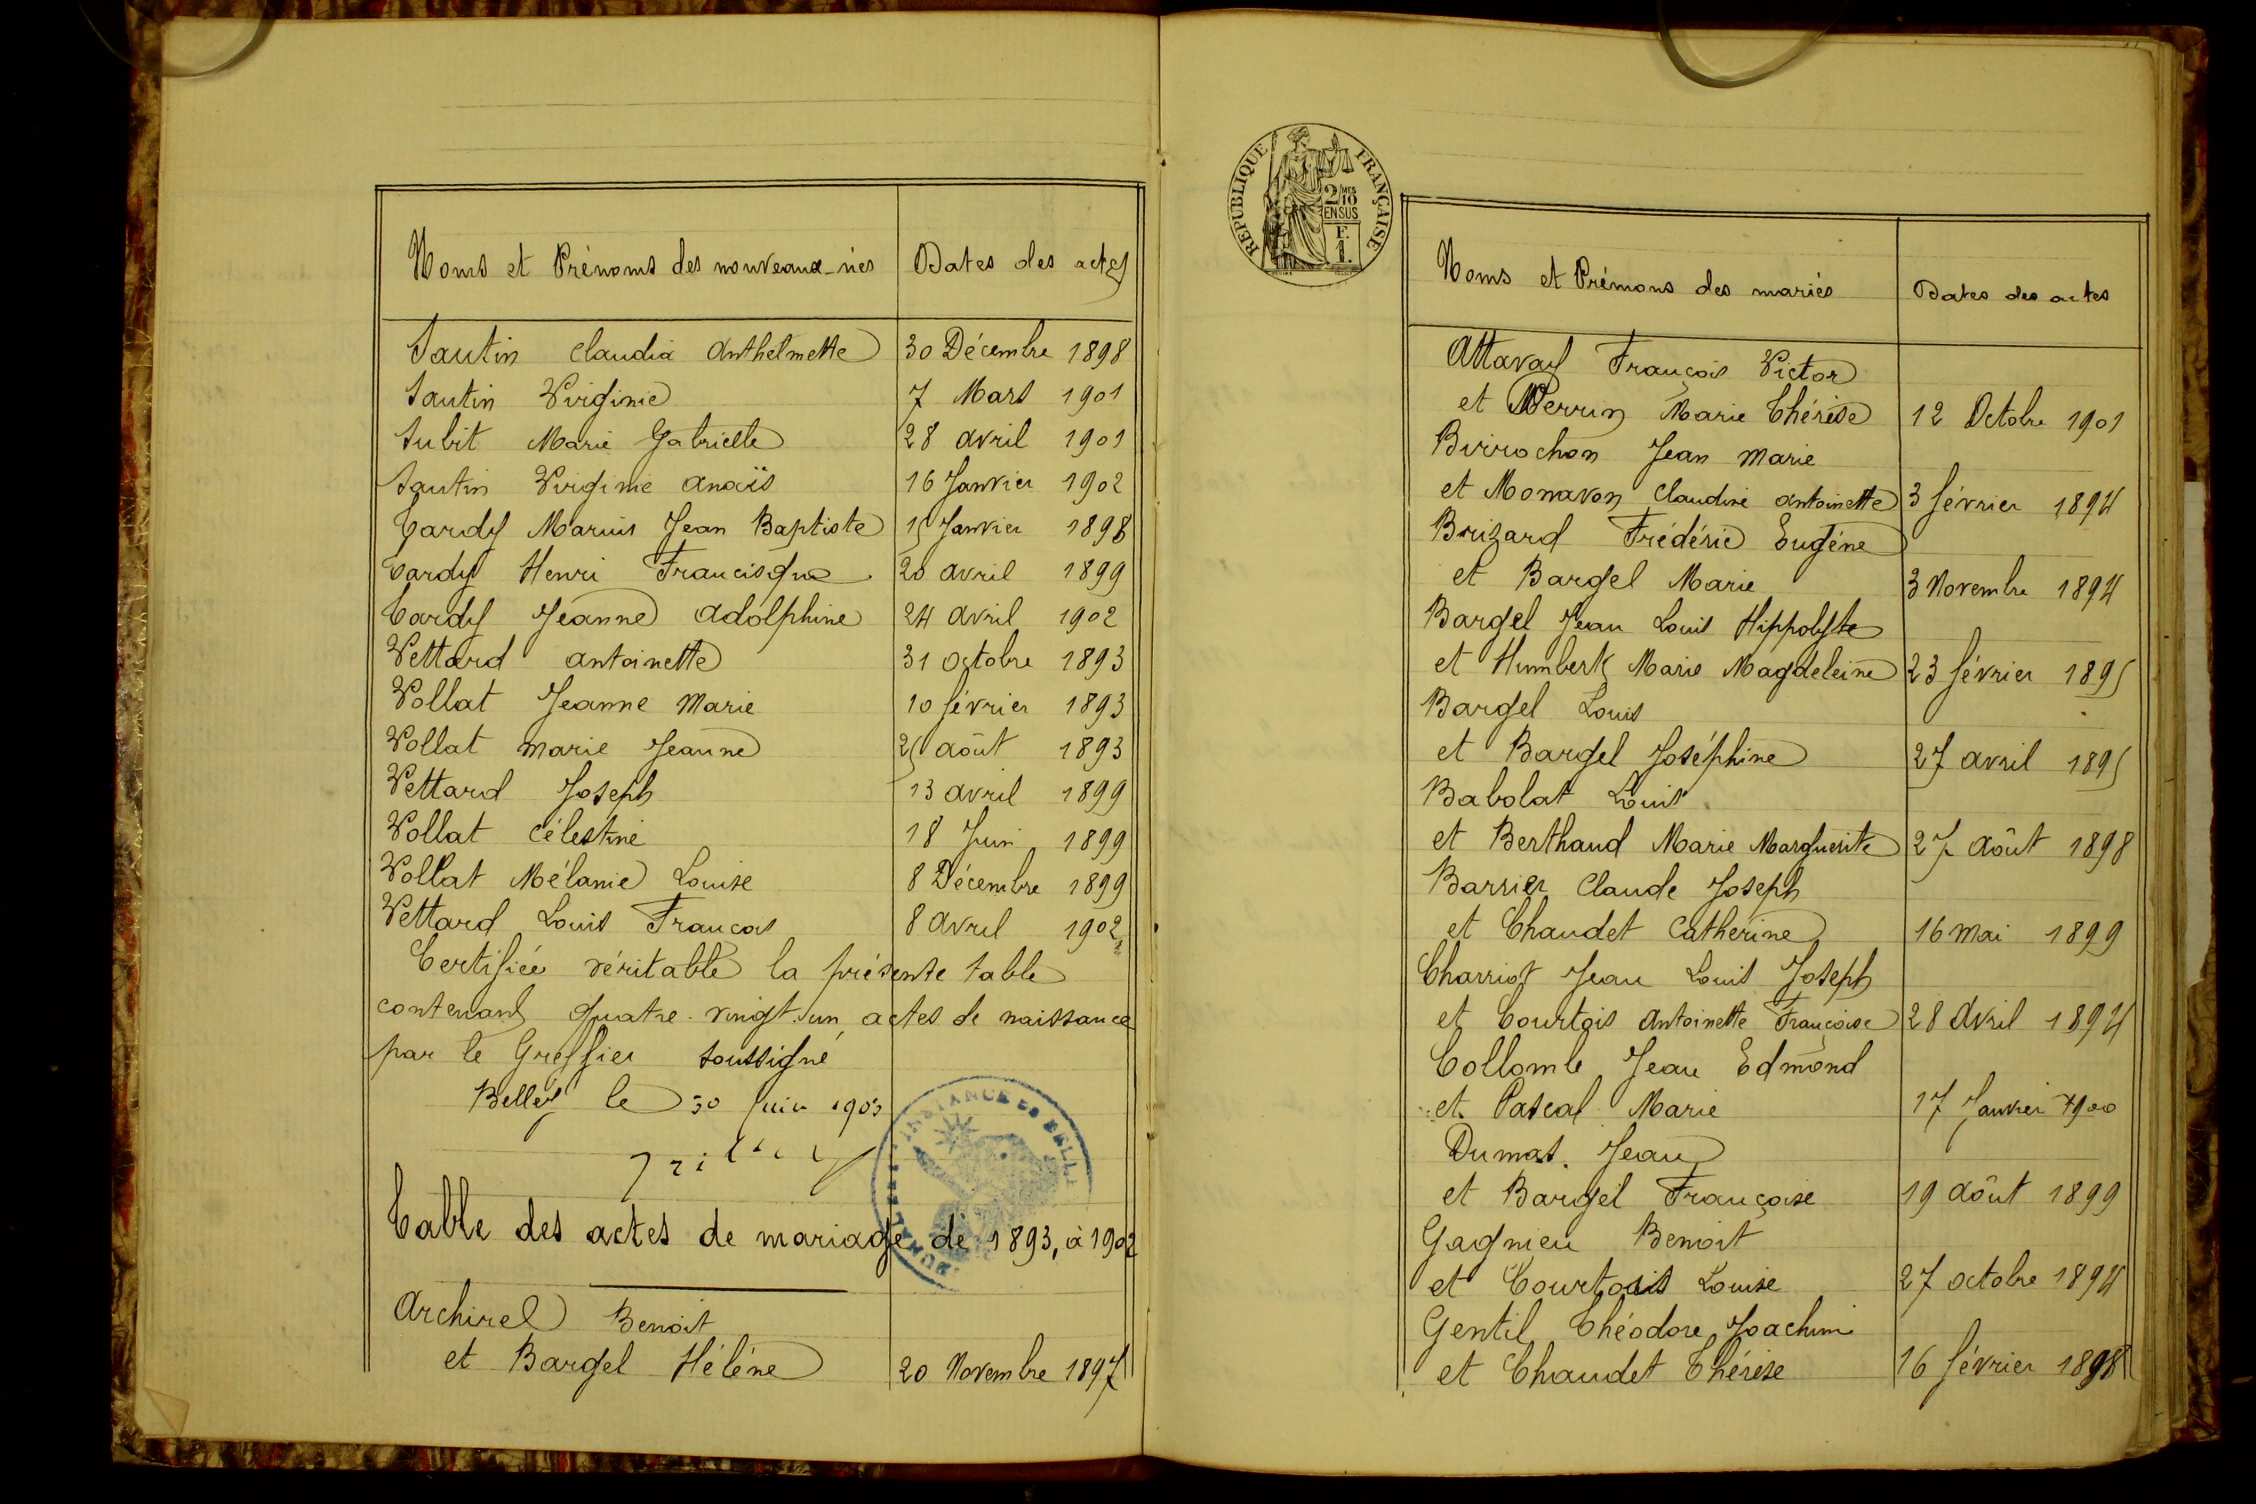 Noms et Prénoms des nouveaux-nés Dates des actes
Sautin Claudia Anthelmette 30 Décembre 1898
Sautin Virginie 7 Mars 1901
Subit Marie Gabrielle 28 avril 1901
Sautin Virginie Anaïs 16 Janvier 1902
Tardy Marius Jean Baptiste 15 Janvier 1898
Tardy Henri Francisque 20 avril 1899
Tardy Jeanne Adolphine 24 avril 1902
Vettard Antoinette 31 octobre 1893
Vollat Jeanne Marie 10 février 1893
Vollat Marie Jeanne 25 août 1893
Vettard Joseph 13 avril 1899
Vollat Célestine 18 Juin 1899
Vollat Mélanie Louise 8 Décembre 1899
Vettard Louis François 8 avril 1902
Certifiée véritable la présente table
contenant quatre-vingt-un actes de naissance
par le Greffier soussigné
Belley le 30 Juin 1903
Table des actes de mariage de 1893, à 1902
Archirel Benoit
et Bargel Hélène 20 Novembre 1897
RÉPUBLIQUE FRANÇAISE
2/10 MES
EN SUS
F.
1.
Noms et Prémons des mariés Dates des actes
Attavay François Victor
et Perrin Marie Thérèse 12 Octobre 1901
Birrochon Jean Marie
et Monavon Claudine Antoinette 3 février 1894
Brizard Frédéric Eugène
et Bargel Marie 3 Novembre 1894
Bargel Jean Louis Hippolyte
et Humbert Marie Magdeleine 23 février 1895
Bargel Louis
et Bargel Joséphine 27 avril 1895
Babolat Louis
et Berthaud Marie Marguerite 27 août 1898
Barrier Claude Joseph
et Chaudet Catherine 16 mai 1899
Charriot Jean Louis Joseph
et Courtois Antoinette Françoise 28 Avril 1894
Collomb Jean Edmond
et Pascal Marie 17 Janvier 1900
Dumas Jean
et Bargel Françoise 19 août 1899
Gagnieu Benoit
et Courtois Louise 27 octobre 1894
Gentil Théodore Joachim
et Chaudet Thérèse 16 février 1898